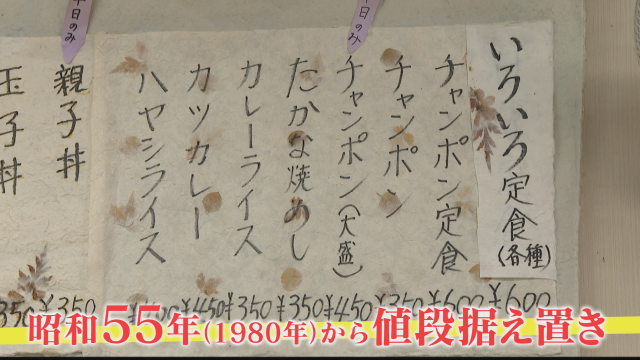 いろいろ定食(各種)
¥600
チャンポン定食
¥600
チャンポン
¥350
チャンポン(大盛)
¥450
たかな焼めし
¥350
カレーライス
¥350
カツカレー
¥450
ハヤシライス
親子丼
¥350
玉子丼
350
日のみ
平日のみ
昭和55年(1980年)から値段据え置き